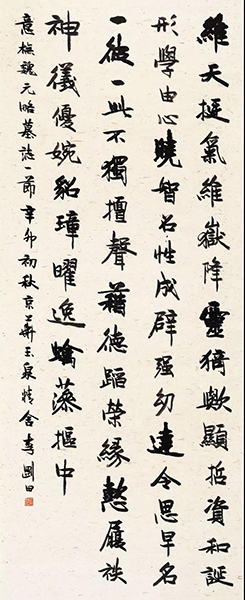 維天挺氣維嶽降靈猗歟顯哲資和誕
形學由心曉智名性成辟强幼達令思早名
一彼一此不獨擅聲藉德蹈榮緣懃履袟
神儀優婉貂璋曜逸蟾藻摳中
意撫魏元略墓誌一節辛卯初秋京華玉泉精舍李剛田